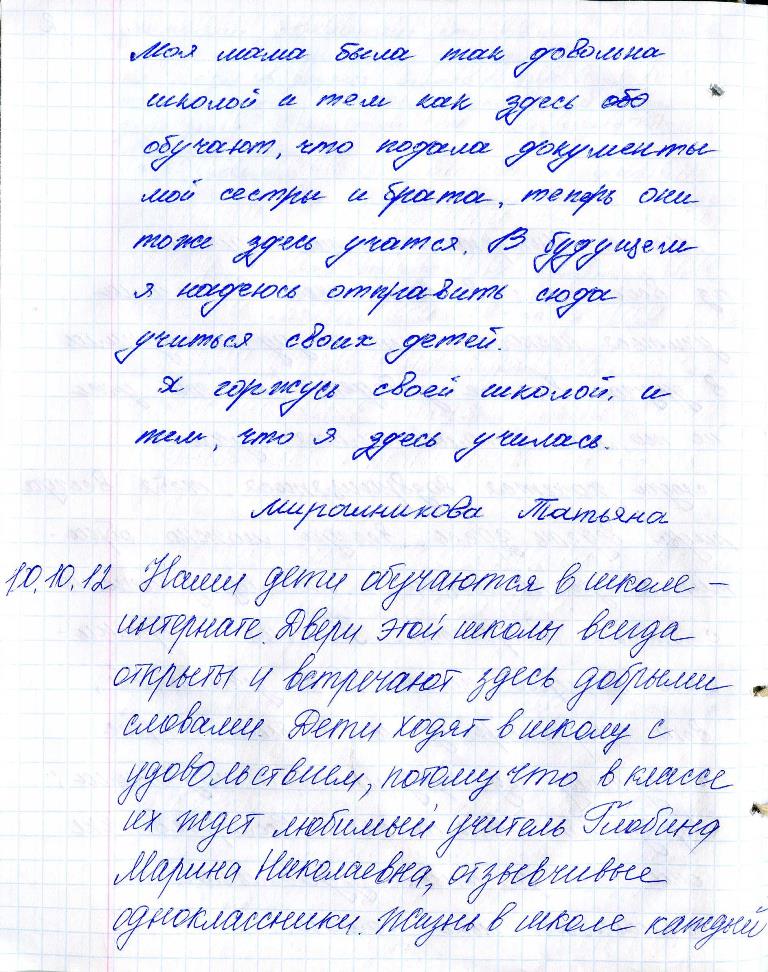 Моя мама была так довольна
школой и тем как здесь обо
обучают, что подала документы
мой сестры и брата, теперь они
тоже здесь учатся. В будущем
я надеюсь отправить сюда
учиться своих детей.
Я горжусь своей школой, и
тем, что я здесь училась.
Мирошникова Татьяна
10.10.12 Наши дети обучаются в школе –
интернате. Двери этой школы всегда
открыты и встречают здесь добрыми
словами. Дети ходят в школу с
удовольствием, потому что в классе
их ждет любимый учитель Глобина
Марина Николаевна, отзывчивые
одноклассники. Жизнь в школе каждый